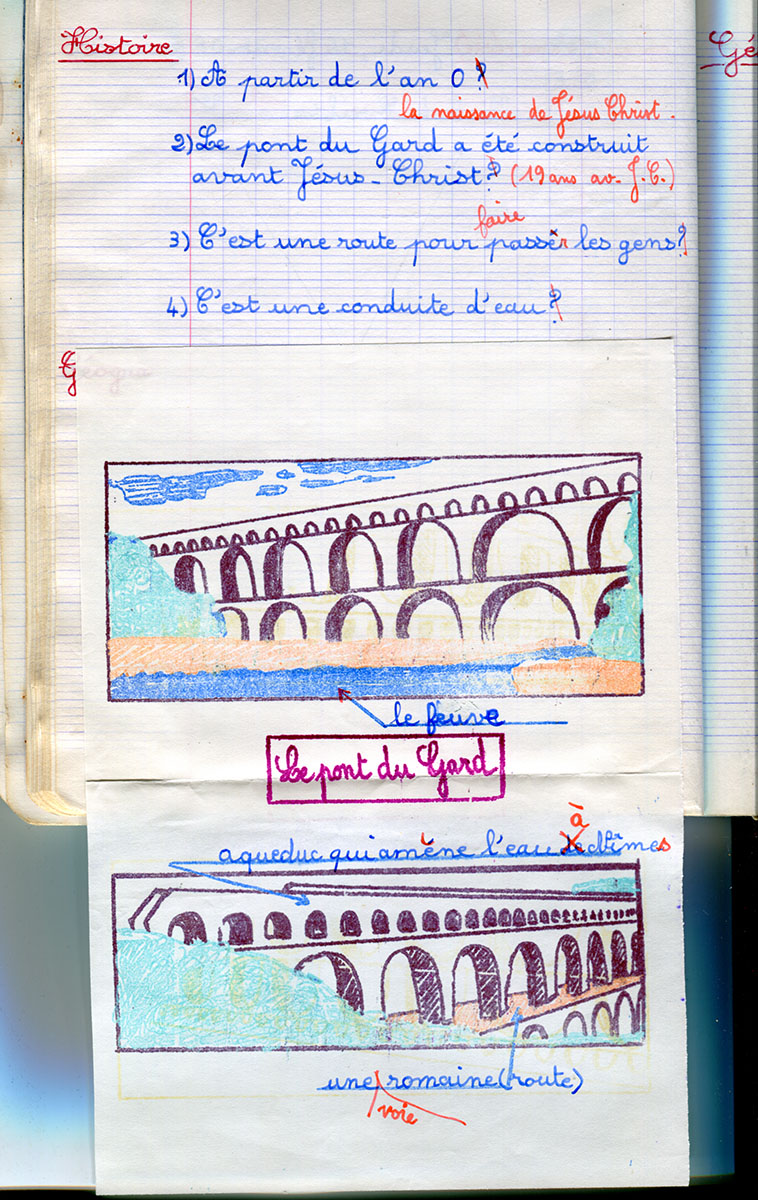 Histoire
Gé
1) A partir de l'an 0 ?
la naissance de Jésus Christ.
2) Le pont du Gard a été construit
avant Jésus-Christ? (19 ans av. J.C.)
faire
3) C'est une route pour passer les gens?
4) C'est une conduite d'eau ?
Géogra
le feuve
Le pont du Gard
à
aqueduc qui amène l'eau de Nîmes
une romaine (route)
voie